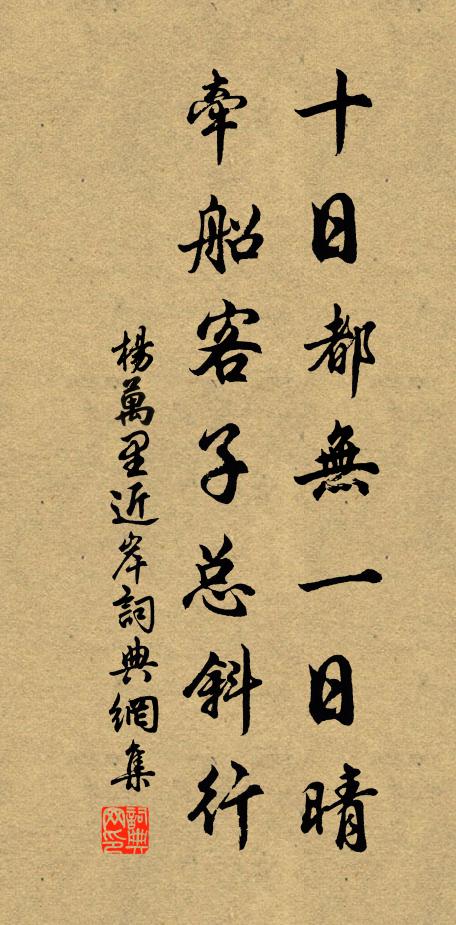 十日都無一日晴
牽船客子总斜行
楊萬里近岸詞典網集
詞典网印